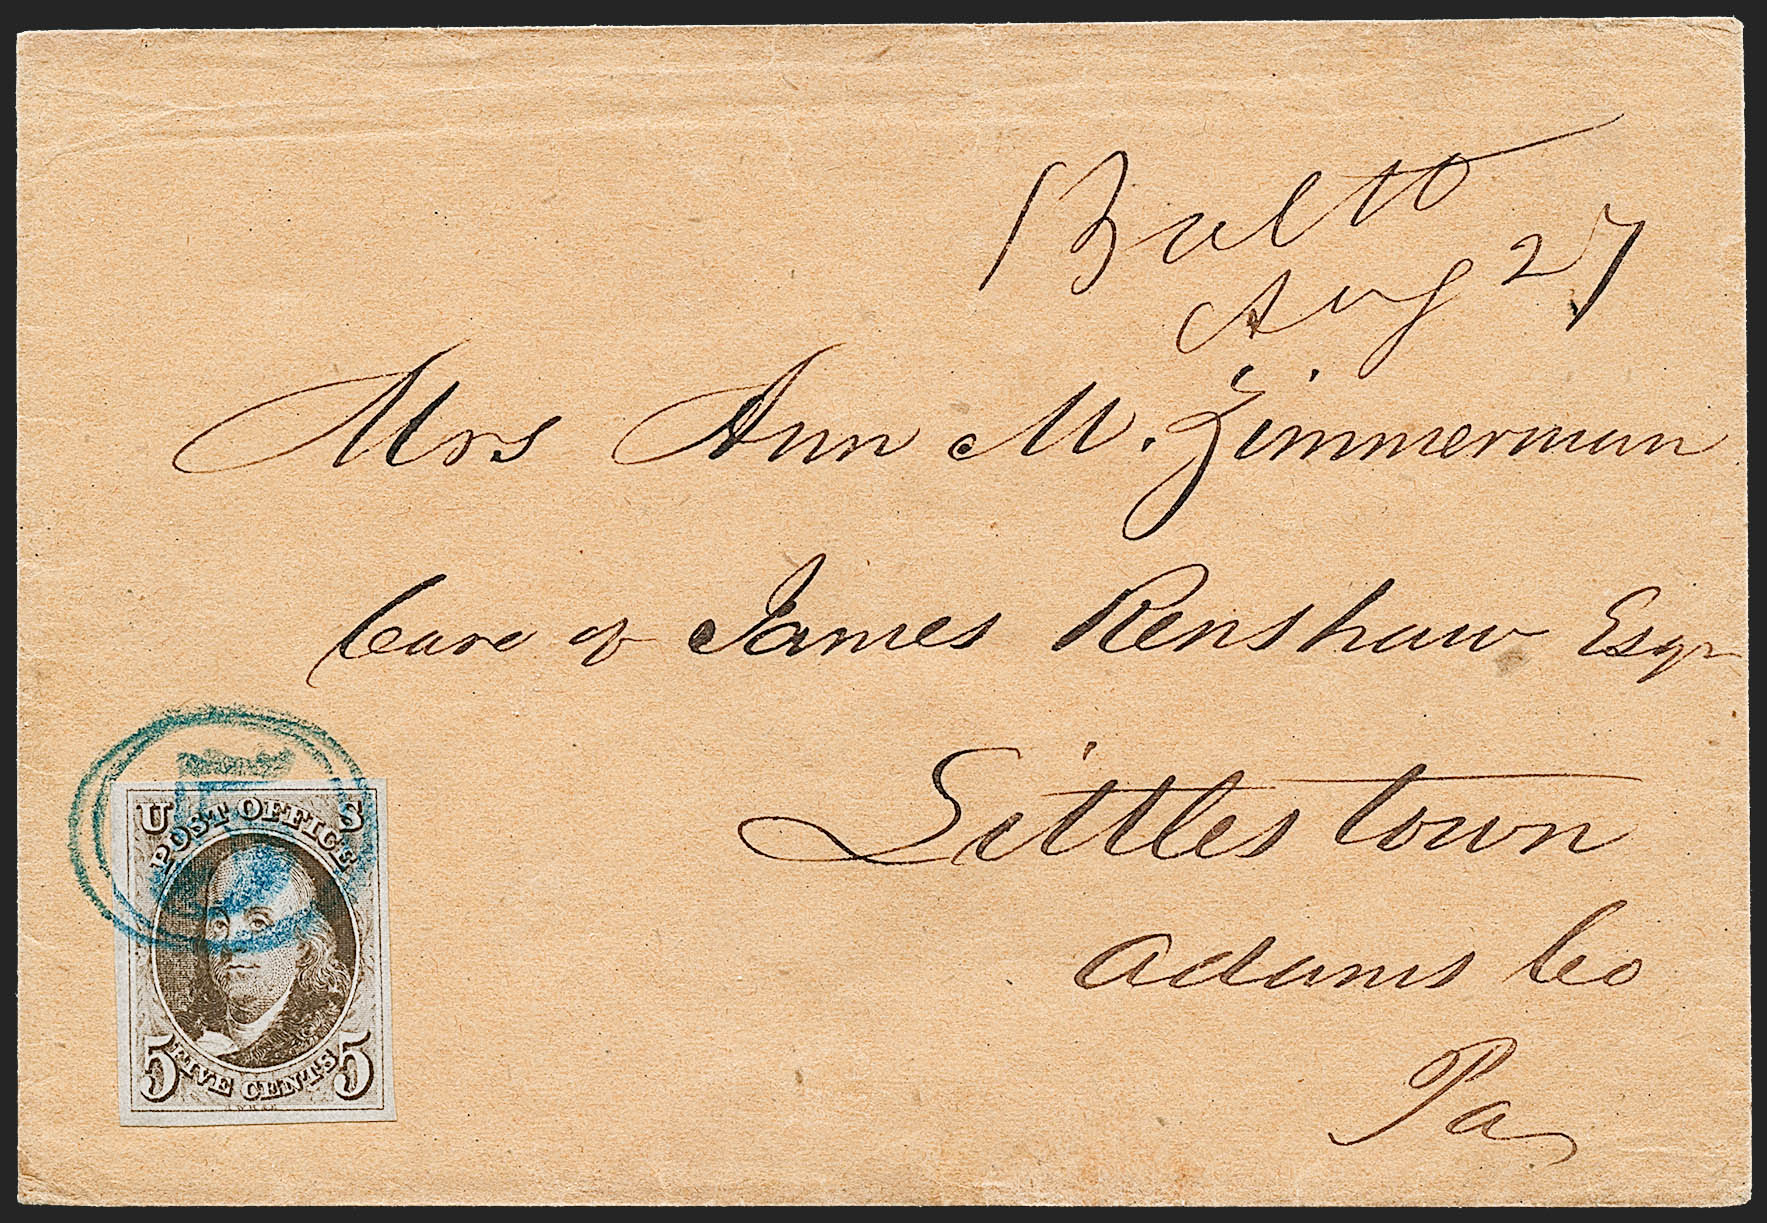 Balto
Aug 27
Mrs Ann M. Zimmerman
Care of James Renshaw Esqr
Littlestown
Adams Co
Pa
5
U S
POST OFFICE
5 5
FIVE CENTS
R.W.H.&E.